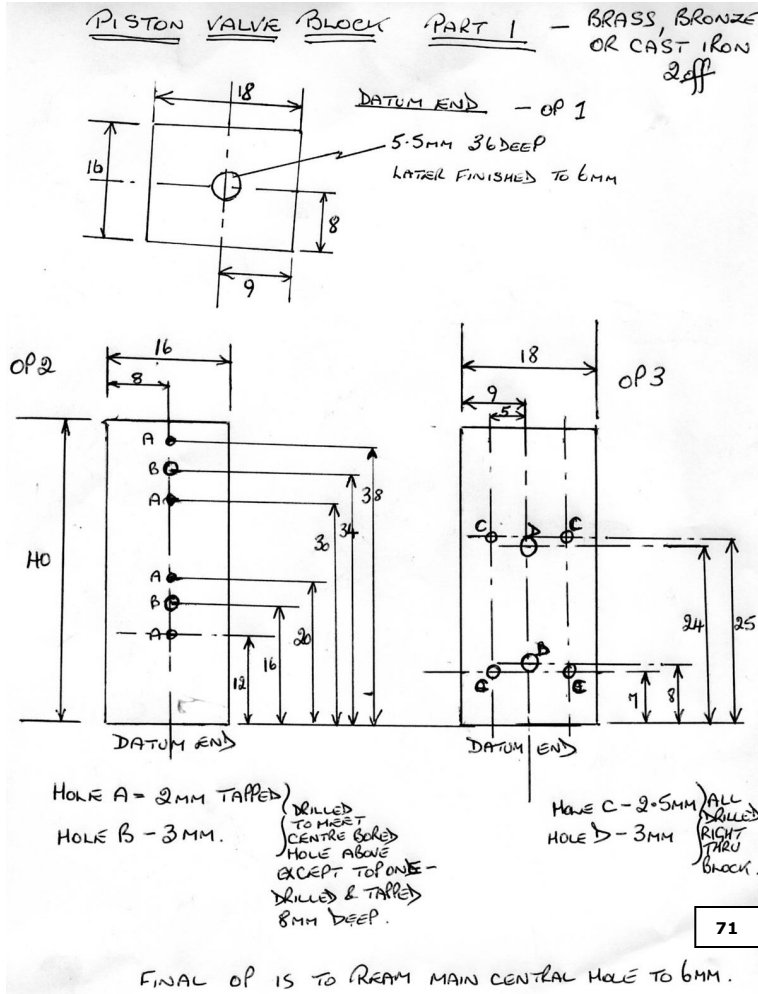 PISTON VALVE BLOCK PART 1 — BRASS, BRONZE
OR CAST IRON
2 off
DATUM END — OP 1
18
16
5.5MM 36 DEEP
LATER FINISHED TO 6MM
8
9
OP 2
16
8
A
B
A
A
B
A
40
12
16
20
30
34
38
DATUM END
OP 3
18
9
5
C D C
C D C
7
8
24
25
DATUM END
HOLE A = 2MM TAPPED
HOLE B - 3MM.
DRILLED
TO MEET
CENTRE BORED
HOLE ABOVE
EXCEPT TOP ONE -
DRILLED & TAPPED
8MM DEEP.
HOLE C - 2.5MM
HOLE D - 3MM
ALL
DRILLED
RIGHT
THRU
BLOCK.
71
FINAL OP IS TO REAM MAIN CENTRAL HOLE TO 6MM.